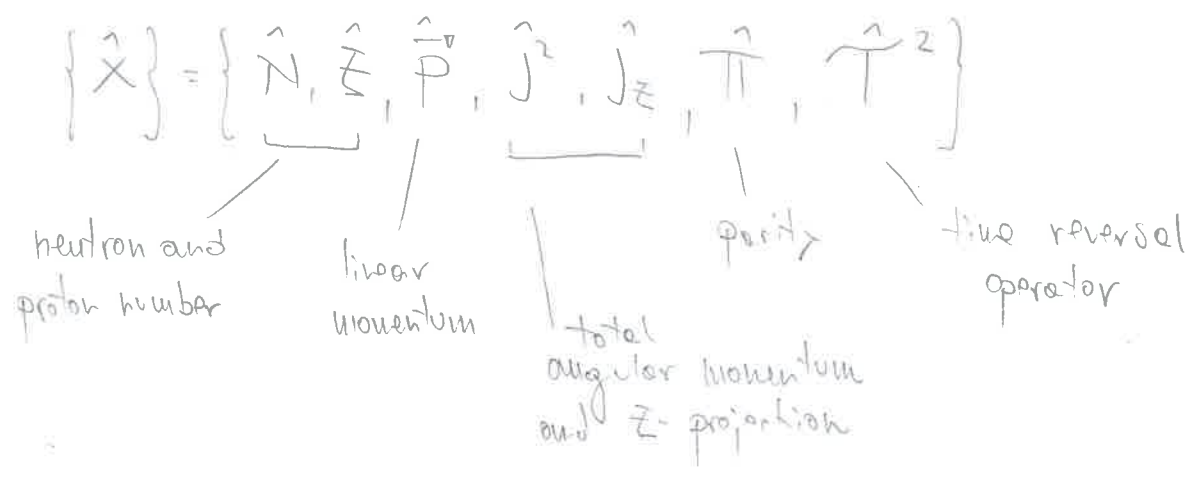 {X̂} = {N̂, Ẑ, P̂⃗, Ĵ², Ĵ_z, Π̂, T̂²}
neutron and
proton number
linear
momentum
total
angular momentum
and z-projection
parity
time reversal
operator